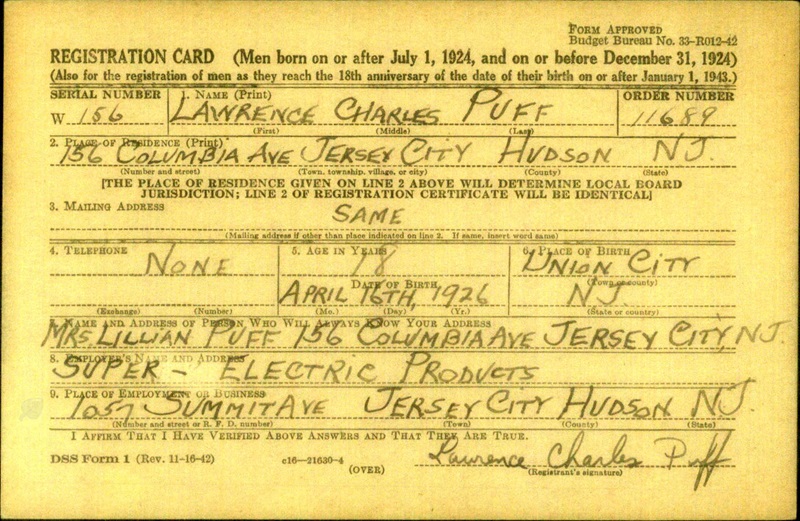 FORM APPROVED
Budget Bureau No. 33-R012-42
REGISTRATION CARD (Men born on or after July 1, 1924, and on or before December 31, 1924)
(Also for the registration of men as they reach the 18th anniversary of the date of their birth on or after January 1, 1943.)
SERIAL NUMBER 1. NAME (Print) ORDER NUMBER
W 156 LAWRENCE CHARLES PUFF 11689
(First) (Middle) (Last)
2. PLACE OF RESIDENCE (Print)
156 COLUMBIA AVE JERSEY CITY HUDSON NJ.
(Number and street) (Town, township, village, or city) (County) (State)
[THE PLACE OF RESIDENCE GIVEN ON LINE 2 ABOVE WILL DETERMINE LOCAL BOARD
JURISDICTION; LINE 2 OF REGISTRATION CERTIFICATE WILL BE IDENTICAL]
3. MAILING ADDRESS
SAME
(Mailing address if other than place indicated on line 2. If same, insert word same)
4. TELEPHONE 5. AGE IN YEARS 6. PLACE OF BIRTH
NONE 18 UNION CITY
DATE OF BIRTH (Town or county)
APRIL 16TH, 1926 NJ.
(Exchange) (Number) (Mo.) (Day) (Yr.) (State or country)
7. NAME AND ADDRESS OF PERSON WHO WILL ALWAYS KNOW YOUR ADDRESS
MRS. LILLIAN PUFF 156 COLUMBIA AVE JERSEY CITY, NJ.
8. EMPLOYER'S NAME AND ADDRESS
SUPER - ELECTRIC PRODUCTS
9. PLACE OF EMPLOYMENT OR BUSINESS
1057 SUMMIT AVE JERSEY CITY HUDSON NJ.
(Number and street or R. F. D. number) (Town) (County) (State)
I AFFIRM THAT I HAVE VERIFIED ABOVE ANSWERS AND THAT THEY ARE TRUE.
DSS Form 1 (Rev. 11-16-42) c16—21630-4 Lawrence Charles Puff
(OVER) (Registrant's signature)